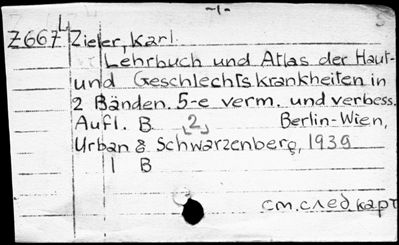 -1-
Z667 Zieler, Karl.
Lehrbuch und Atlas der Haut-
und Geschlechtskrankheiten in
2 Bänden. 5-e verm. und verbess.
Aufl. B [2] Berlin-Wien,
Urban & Schwarzenberg, 1939
1 B
см. след карт